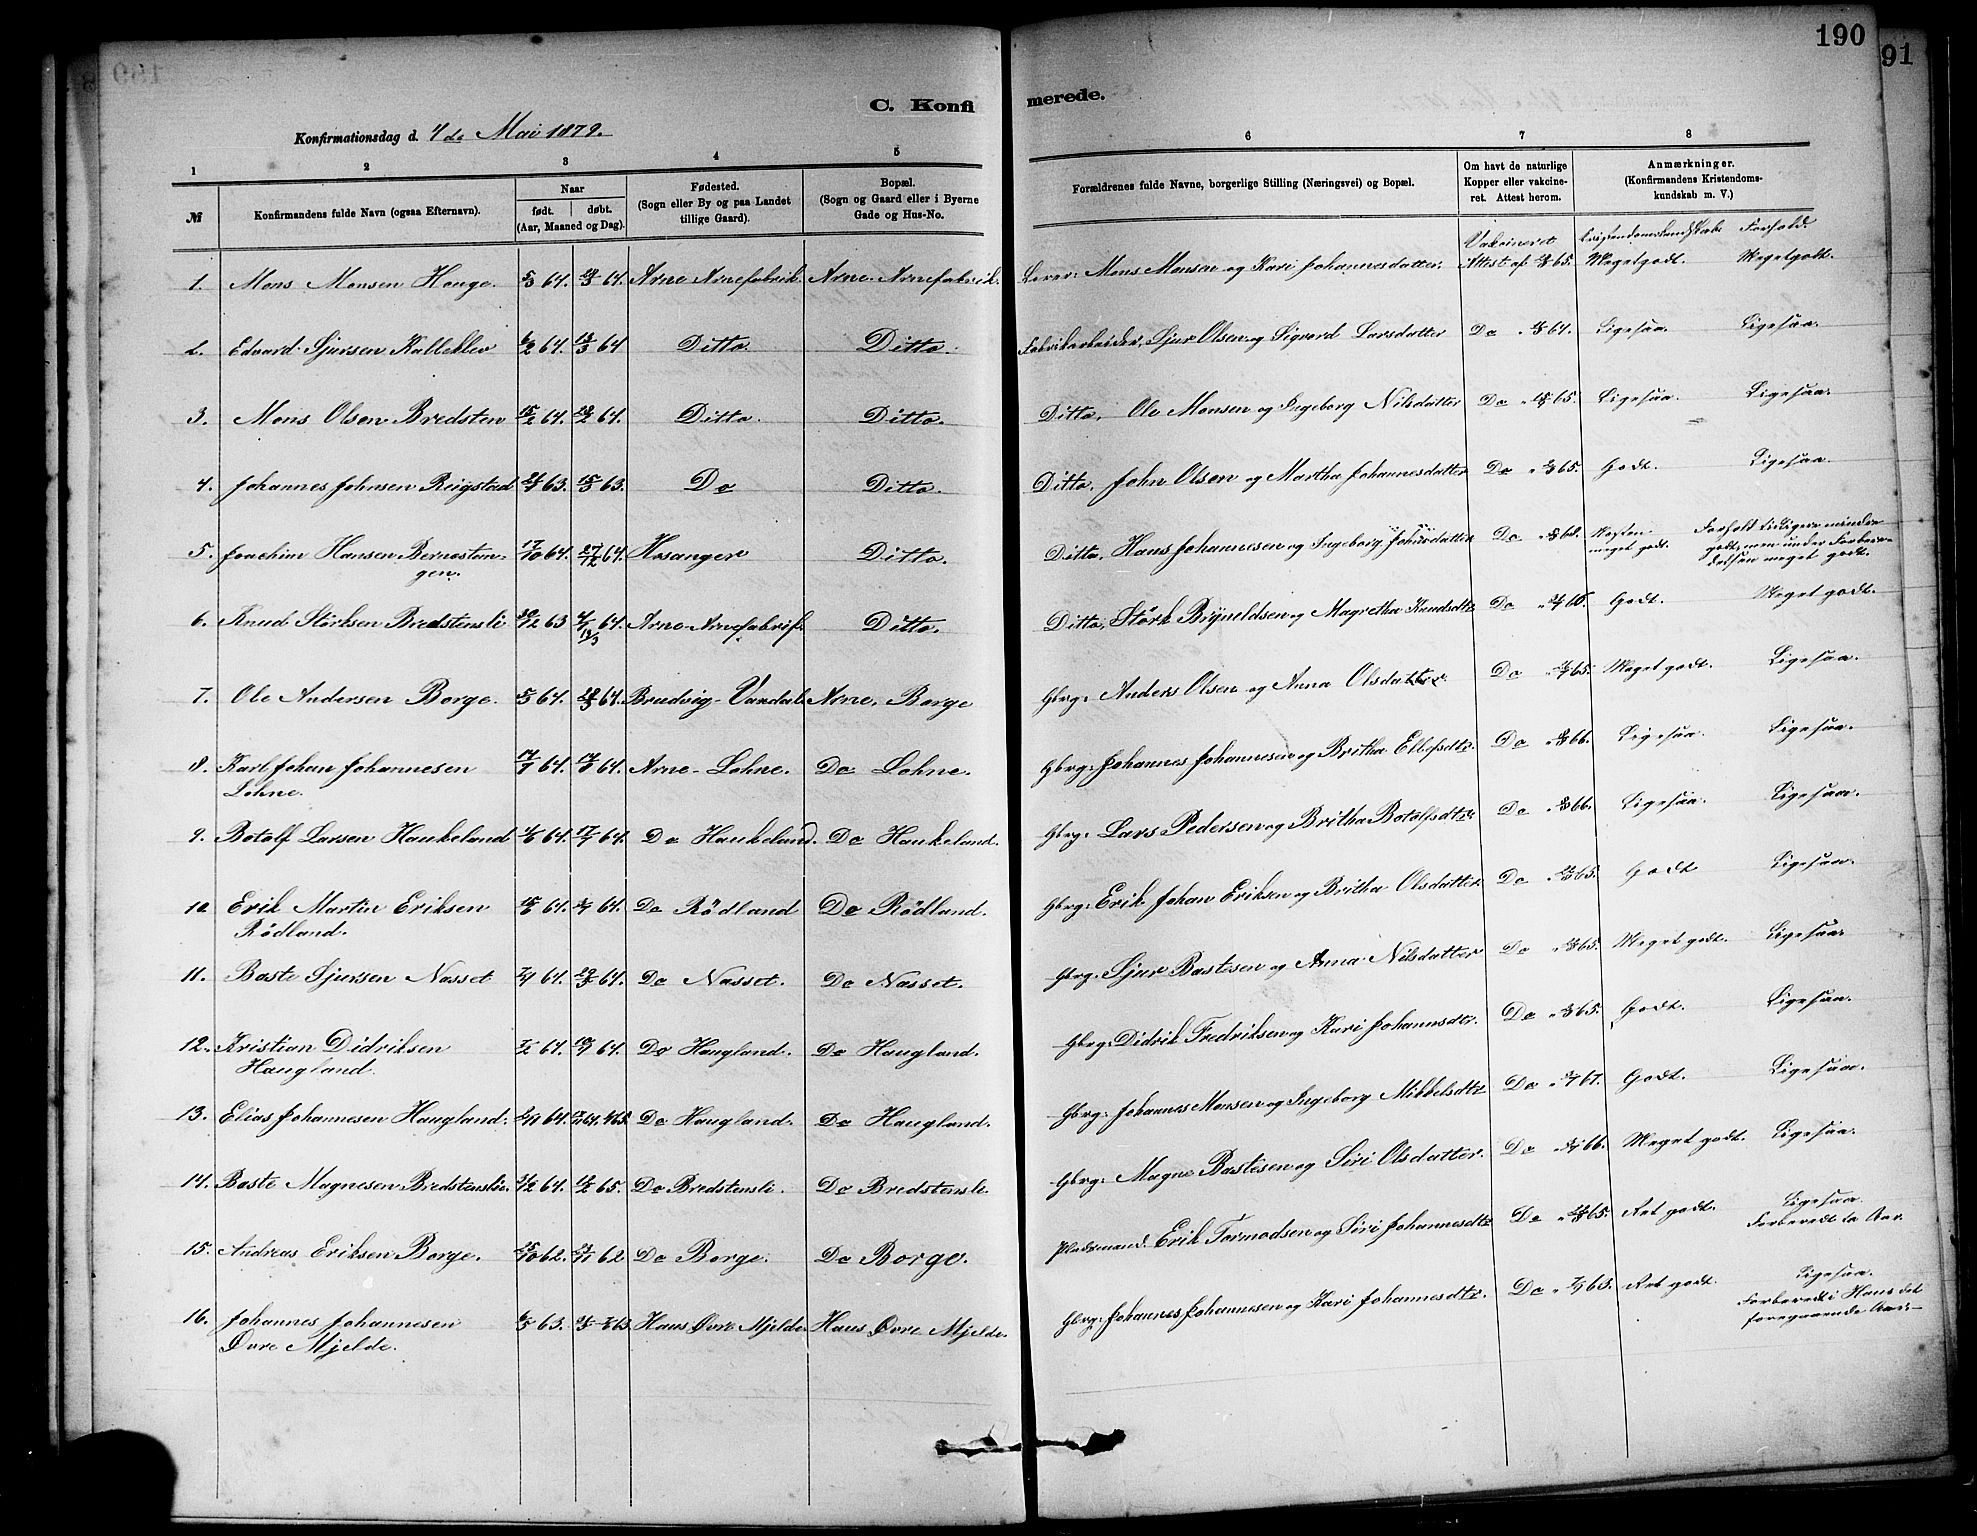 190
91
C. Konfi
merede.
Konfirmationsdag d. 4de Mai 1879.
1 2 3 4 5 6 7 8
№
Konfirmandens fulde Navn (ogsaa Efternavn).
Naar
født. døbt.
(Aar, Maaned og Dag).
Fødested.
(Sogn eller By og paa Landet
tillige Gaard).
Bopæl.
(Sogn og Gaard eller i Byerne
Gade og Hus-No.
Forældrenes fulde Navne, borgerlige Stilling (Næringsvei) og Bopæl.
Om havt de naturlige
Kopper eller vakcine-
ret. Attest herom.
Anmærkninger.
(Konfirmandens Kristendoms-
kundskab m. V.)
Vakcineret Kristendomskundskab Forhold.
1. Mons Monsen Houge. 64. 64. Arne Arnefabrik. Arne. Arnefabrik. Mons Monsen og Kari Johannesdatter. Attest af 65. Meget godt. Meget godt.
2. Edvard Sjursen Kalleklev 6/2 64. 13/3 64 Ditto. Ditto. Fabrikarbeider, Sjur Olsen og Sigvord Larsdatter Do 64. Ligesaa. Ligesaa.
3. Mons Olsen Bredsten 15/2 64. 64. Ditto. Ditto. Ditto. Ole Monsen og Ingeborg Nilsdatter Do 65. Ligesaa. Ligesaa.
4. Johannes Johnsen Reigstad 63. 63. Do Ditto. Ditto. John Olsen og Martha Johannesdatter Do 65. Godt. Ligesaa.
5. Joachim Hansen Bernestan-
gen. 17/10 64. 27/12 64. Hosanger Ditto. Ditto. Hans Johannesen og Ingeborg Do Næsten
meget godt. Forhold tidligere mindre
godt, men under Forbere-
delsen meget godt.
6. Knud Störksen Bredstensli 30/12 63 64. Arne-Arnefabrik Ditto. Ditto. Störk Brynildsen og Magretha Knudsdtr Do Godt. Meget godt.
7. Ole Andersen Borge. 64. 64. Brudvig-Vandal Arne. Borge Gbrg: Anders Olsen og Anna Olsdatter. Do 65. Meget godt. Ligesaa.
8. Karl Johan Johannesen
Lohne. 64. 64. Arne-Lohne. Do Lohne. Gbrg: Johannes Johannesen og Britha Ellefsdtr. Do 66. Ligesaa. Ligesaa.
9. Botolf Larsen Haukeland 64. 17/7 64. Do Haukeland. Do Haukeland. Gbrg: Lars Pedersen og Britha Botolfsdtr. Do 66. Ligesaa. Ligesaa.
10 Erik Martin Eriksen
Rödland. 64. 64. Do Rödland Do Rödland. Gbrg: Erik Johan Eriksen og Britha Olsdatter. Do 65. Godt Ligesaa.
11. Baste Sjursen Nasset 64. 64. Do Nasset. Do Nasset. Gbrg: Sjur Bastesen og Anna Nilsdatter Do 65. Meget godt. Ligesaa.
12. Kristian Didriksen
Haugland. 64. 64. Do Haugland. Do Haugland. Gbrg: Didrik Fredriksen og Kari Johannsdtr. Do 65. Godt. Ligesaa.
13. Elias Johannesen Haugland. 64. Do Haugland. Do Haugland. Gbrg: Johannes Monsen og Ingeborg Mikkelsdtr Do 67. Godt. Ligesaa.
14. Baste Magnesen Bredstensli. 64. 65. Do Bredstensli. Do Bredstensli. Gbrg: Magne Bastesen og Siri Olsdatter. Do 66. Meget godt. Ligesaa.
15. Andreas Eriksen Borge. 25/10 62. 62 Do Borge. Do Borge. Pladsmand. Erik Tormodsen og Siri Johannesdtr Do 65. Ret godt. Ligesaa.
Forberedt to Aar.
16. Johannes Johannesen
Øvre Mjelde. 63. Haus Øvre Mjelde. Haus Øvre Mjelde. Gbrg: Johannes Johannesen og Kari Johannesdtr. Do Ret godt. Ligesaa.
Forberedt i Haus det
foregaaende Aar.